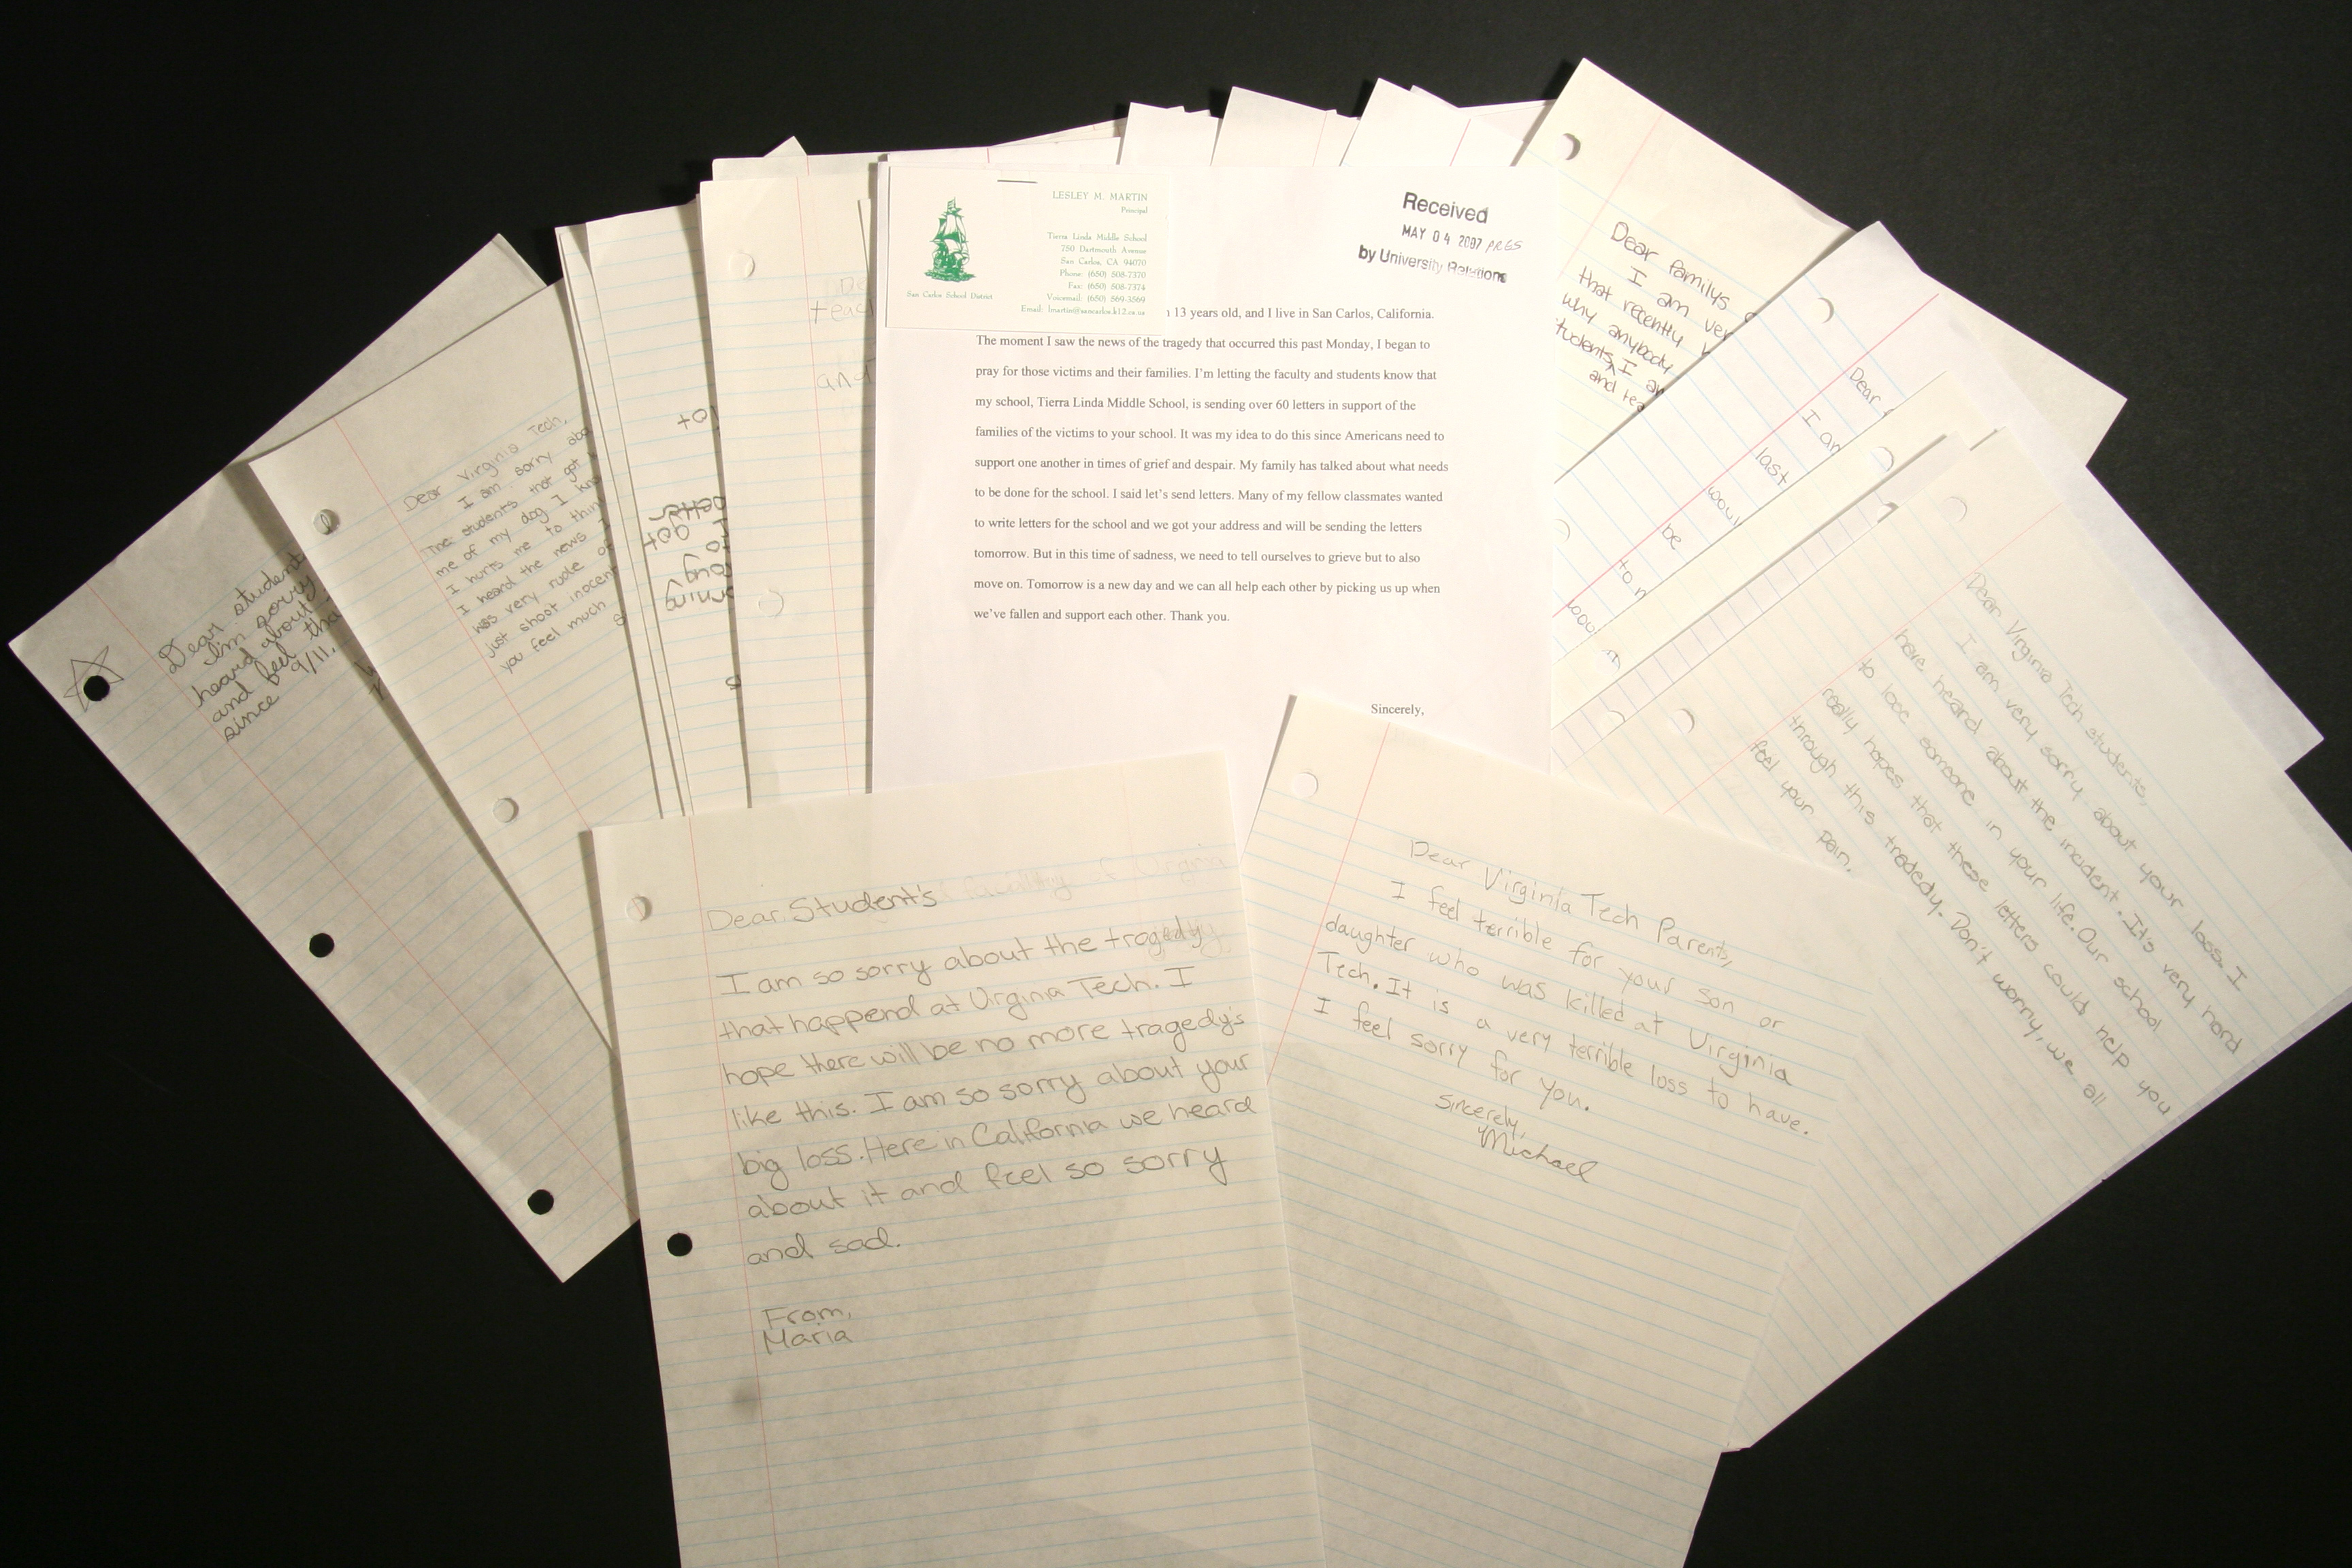 LESLEY M. MARTIN
Principal
Tierra Linda Middle School
750 Dartmouth Avenue
San Carlos, CA 94070
Phone: (650) 508-7370
Fax: (650) 508-7374
Voicemail: (650) 569-3569
Email: lmartin@sancarlos.k12.ca.us
San Carlos School District
Received
MAY 04 2007 PRES
by University Relations
13 years old, and I live in San Carlos, California.
The moment I saw the news of the tragedy that occurred this past Monday, I began to
pray for those victims and their families. I'm letting the faculty and students know that
my school, Tierra Linda Middle School, is sending over 60 letters in support of the
families of the victims to your school. It was my idea to do this since Americans need to
support one another in times of grief and despair. My family has talked about what needs
to be done for the school. I said let's send letters. Many of my fellow classmates wanted
to write letters for the school and we got your address and will be sending the letters
tomorrow. But in this time of sadness, we need to tell ourselves to grieve but to also
move on. Tomorrow is a new day and we can all help each other by picking us up when
we've fallen and support each other. Thank you.
Sincerely,
Dear student
I'm sorry
heard about
and feel tha
since 9/11.
Dear Virginia Tech,
I am sorry abo
The students that got
me of my dog I kno
I hurts me to thin
I heard the news I
was very rude of
just shoot inocent
you feel much
lot
better
got
rning
teac
and
Dear familys
I am ver
that recently
why anybody
students, I am
and tea
Dear
I am
last
woul
be
to m
Dear Virginia Tech students,
I am very sorry about your loss. I
have heard about the incident. It's very hard
to lose someone in your life. Our school
really hopes that these letters could help you
through this tradedy. Don't worry, we all
feel your pain.
Dear Student's
I am so sorry about the tragedy
that happend at Virgina Tech. I
hope there will be no more tragedy's
like this. I am so sorry about your
big loss. Here in California we heard
about it and feel so sorry
and sad.
From,
Maria
Dear Virginia Tech Parents,
I feel terrible for your son or
daughter who was killed at Virginia
Tech. It is a very terrible loss to have.
I feel sorry for you.
Sincerely,
Michael